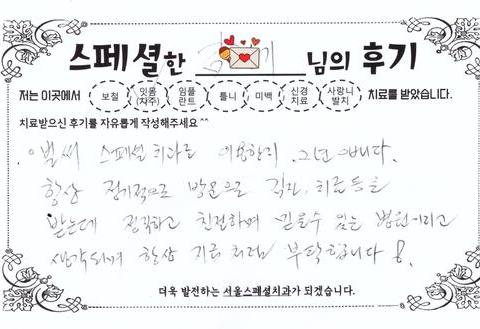 스페셜한 김 기 님의 후기
저는 이곳에서 보철 잇몸(치주) 임플란트 틀니 미백 신경치료 사랑니발치 치료를 받았습니다.
치료받으신 후기를 자유롭게 작성해주세요^^
벌써 스페셜 치과를 이용한지 2년 입니다.
항상 정기적으로 방문으로 검진, 치료등을
받는데 정직하고 친절하여 믿을수 있는 병원이라고
생각되며 항상 지금처럼 부탁합니다!
더욱 발전하는 서울스페셜치과가 되겠습니다.